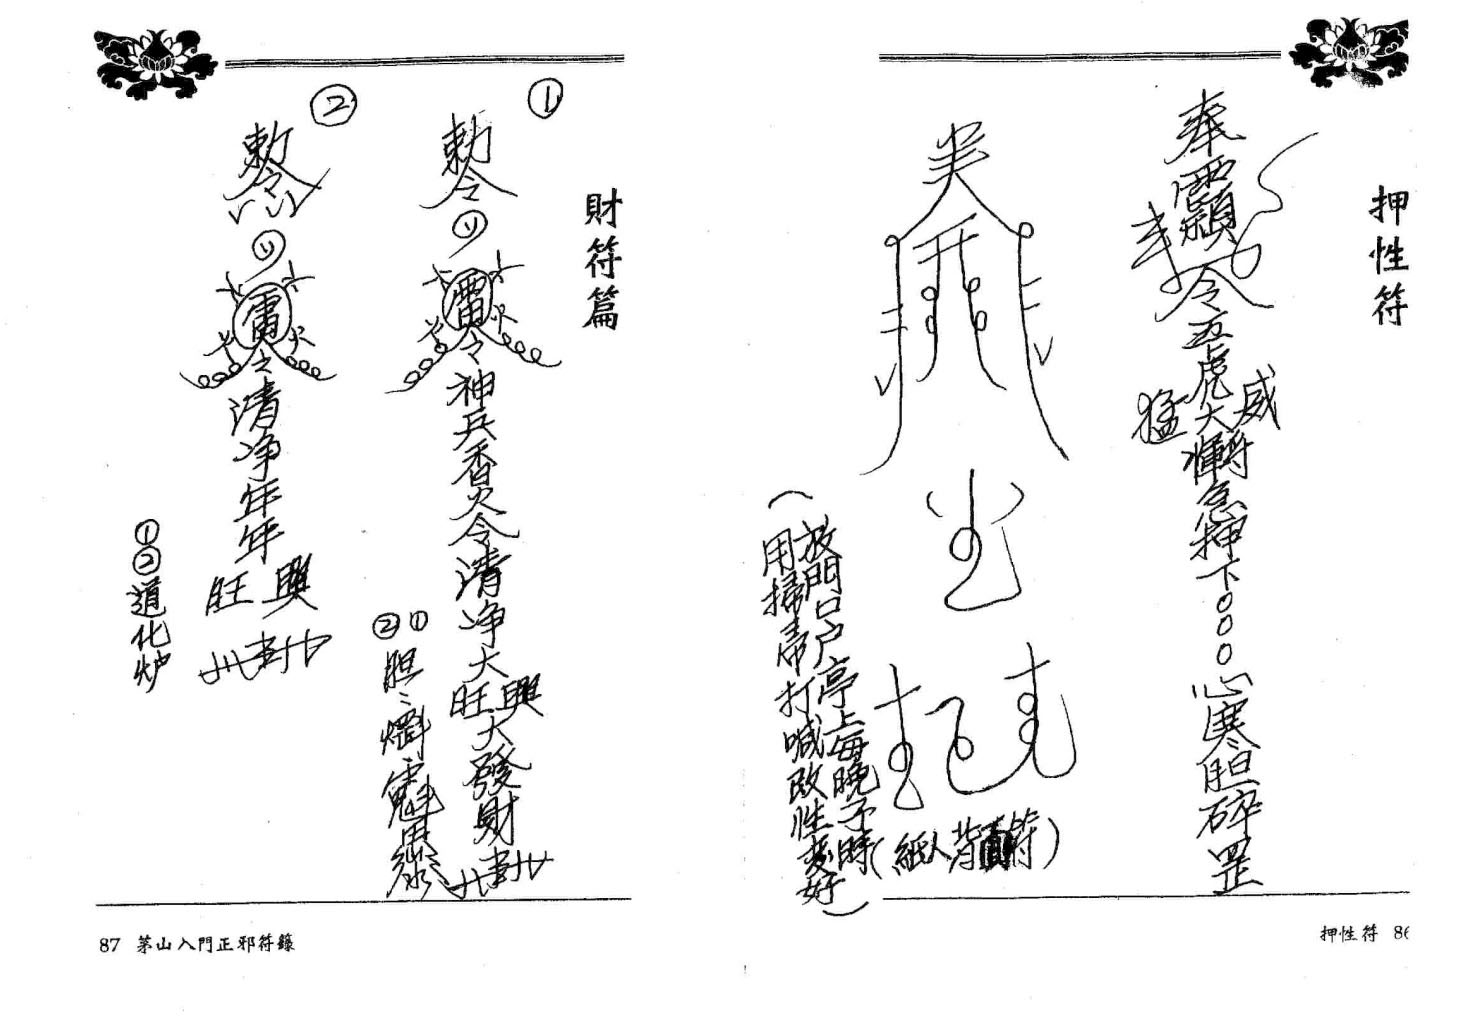 押性符
奉
令五虎大
威
猛
急押下○○○心寒胆碎罡
(紙人背面符)
(放門口户亭上每晚子時
用掃帚打喊改性变好)
押性符 86
財符篇
①
勅令
令神兵香火令清净大
興
旺
大發財
①
②
胆
②
勅令
令清净年年
興
旺
①②道化炉
87 茅山入門正邪符籙